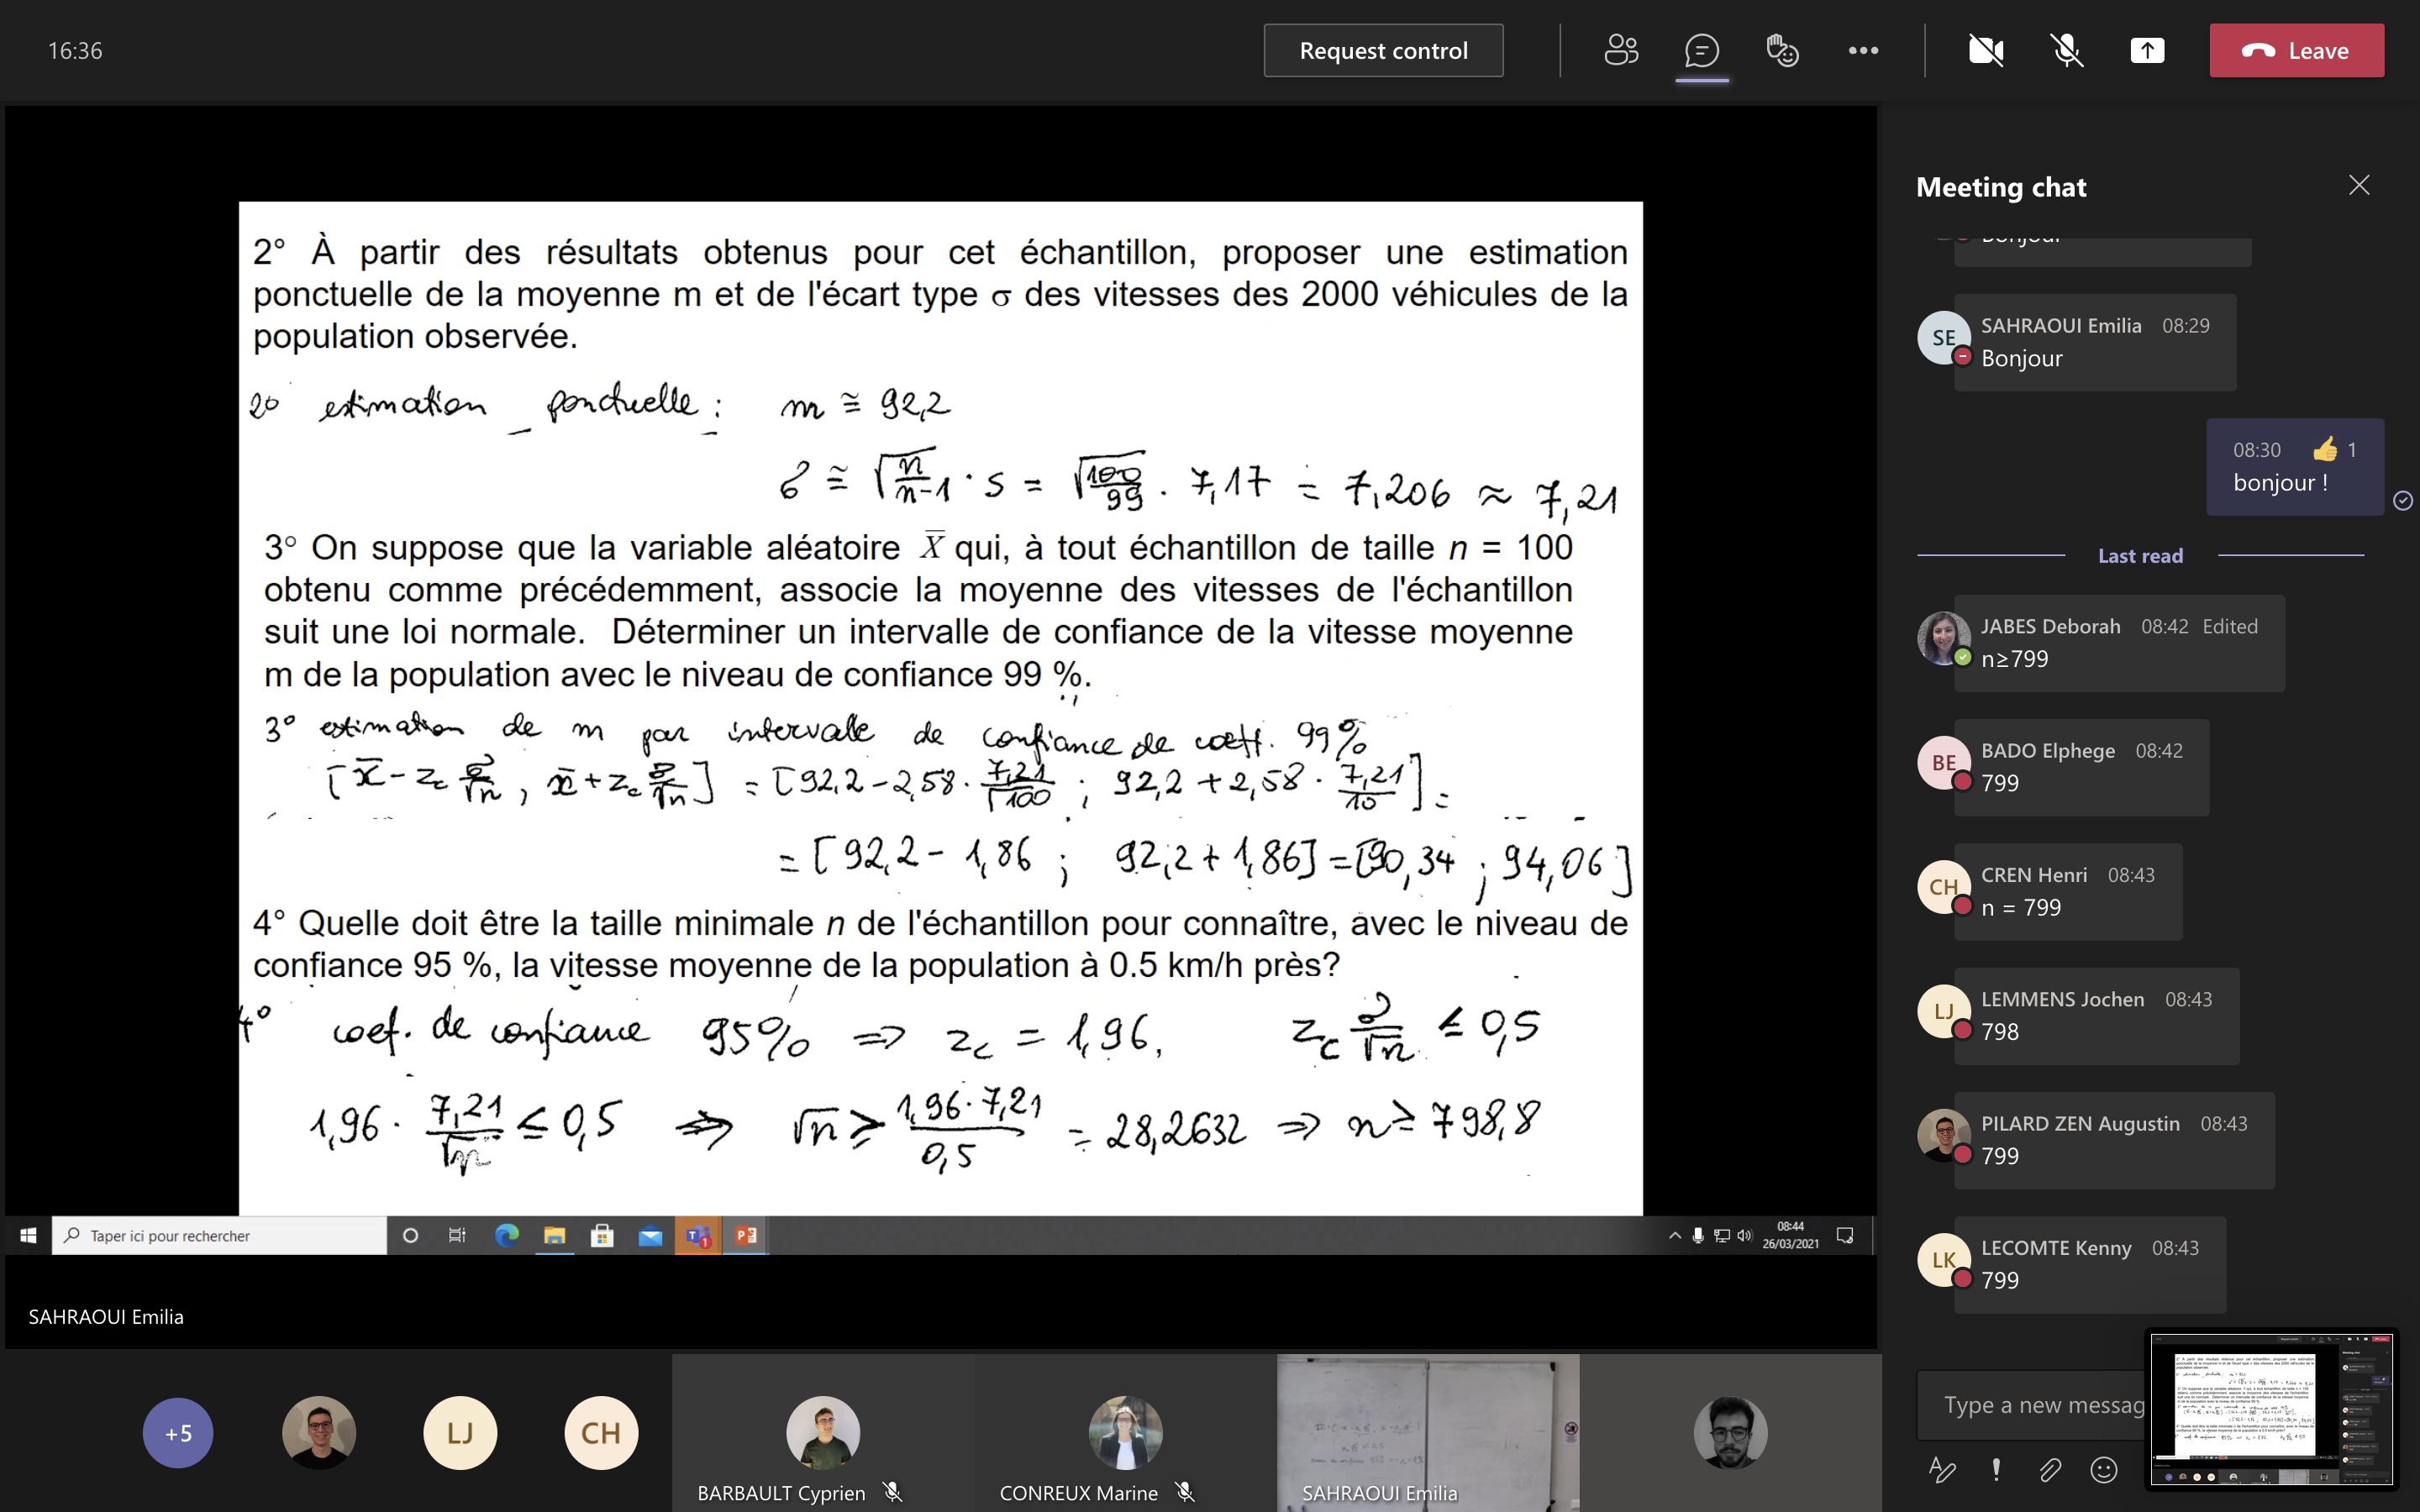 16:36
Request control
Leave
2° À partir des résultats obtenus pour cet échantillon, proposer une estimation
ponctuelle de la moyenne m et de l'écart type σ des vitesses des 2000 véhicules de la
population observée.
2° estimation ponctuelle : m ≅ 92,2
σ ≅ √(n/n-1) · s = √(100/99) · 7,17 = 7,206 ≈ 7,21
3° On suppose que la variable aléatoire X̅ qui, à tout échantillon de taille n = 100
obtenu comme précédemment, associe la moyenne des vitesses de l'échantillon
suit une loi normale. Déterminer un intervalle de confiance de la vitesse moyenne
m de la population avec le niveau de confiance 99 %.
3° estimation de m par intervalle de confiance de coeff. 99%
[x̅ - zc σ/√n , x̅ + zc σ/√n] = [92,2 - 2,58 · 7,21/√100 ; 92,2 + 2,58 · 7,21/10] =
= [92,2 - 1,86 ; 92,2 + 1,86] = [90,34 ; 94,06]
4° Quelle doit être la taille minimale n de l'échantillon pour connaître, avec le niveau de
confiance 95 %, la vitesse moyenne de la population à 0.5 km/h près?
4° coef. de confiance 95% ⇒ zc = 1,96, zc σ/√n ≤ 0,5
1,96 · 7,21/√n ≤ 0,5 ⇒ √n ≥ 1,96 · 7,21/0,5 = 28,2632 ⇒ n ≥ 798,8
Taper ici pour rechercher
08:44
26/03/2021
SAHRAOUI Emilia
+5
LJ
CH
BARBAULT Cyprien
CONREUX Marine
SAHRAOUI Emilia
Meeting chat
Bonjour
SE
SAHRAOUI Emilia 08:29
Bonjour
08:30 👍 1
bonjour !
Last read
JABES Deborah 08:42 Edited
n≥799
BE
BADO Elphege 08:42
799
CH
CREN Henri 08:43
n = 799
LJ
LEMMENS Jochen 08:43
798
PILARD ZEN Augustin 08:43
799
LK
LECOMTE Kenny 08:43
799
Type a new messag